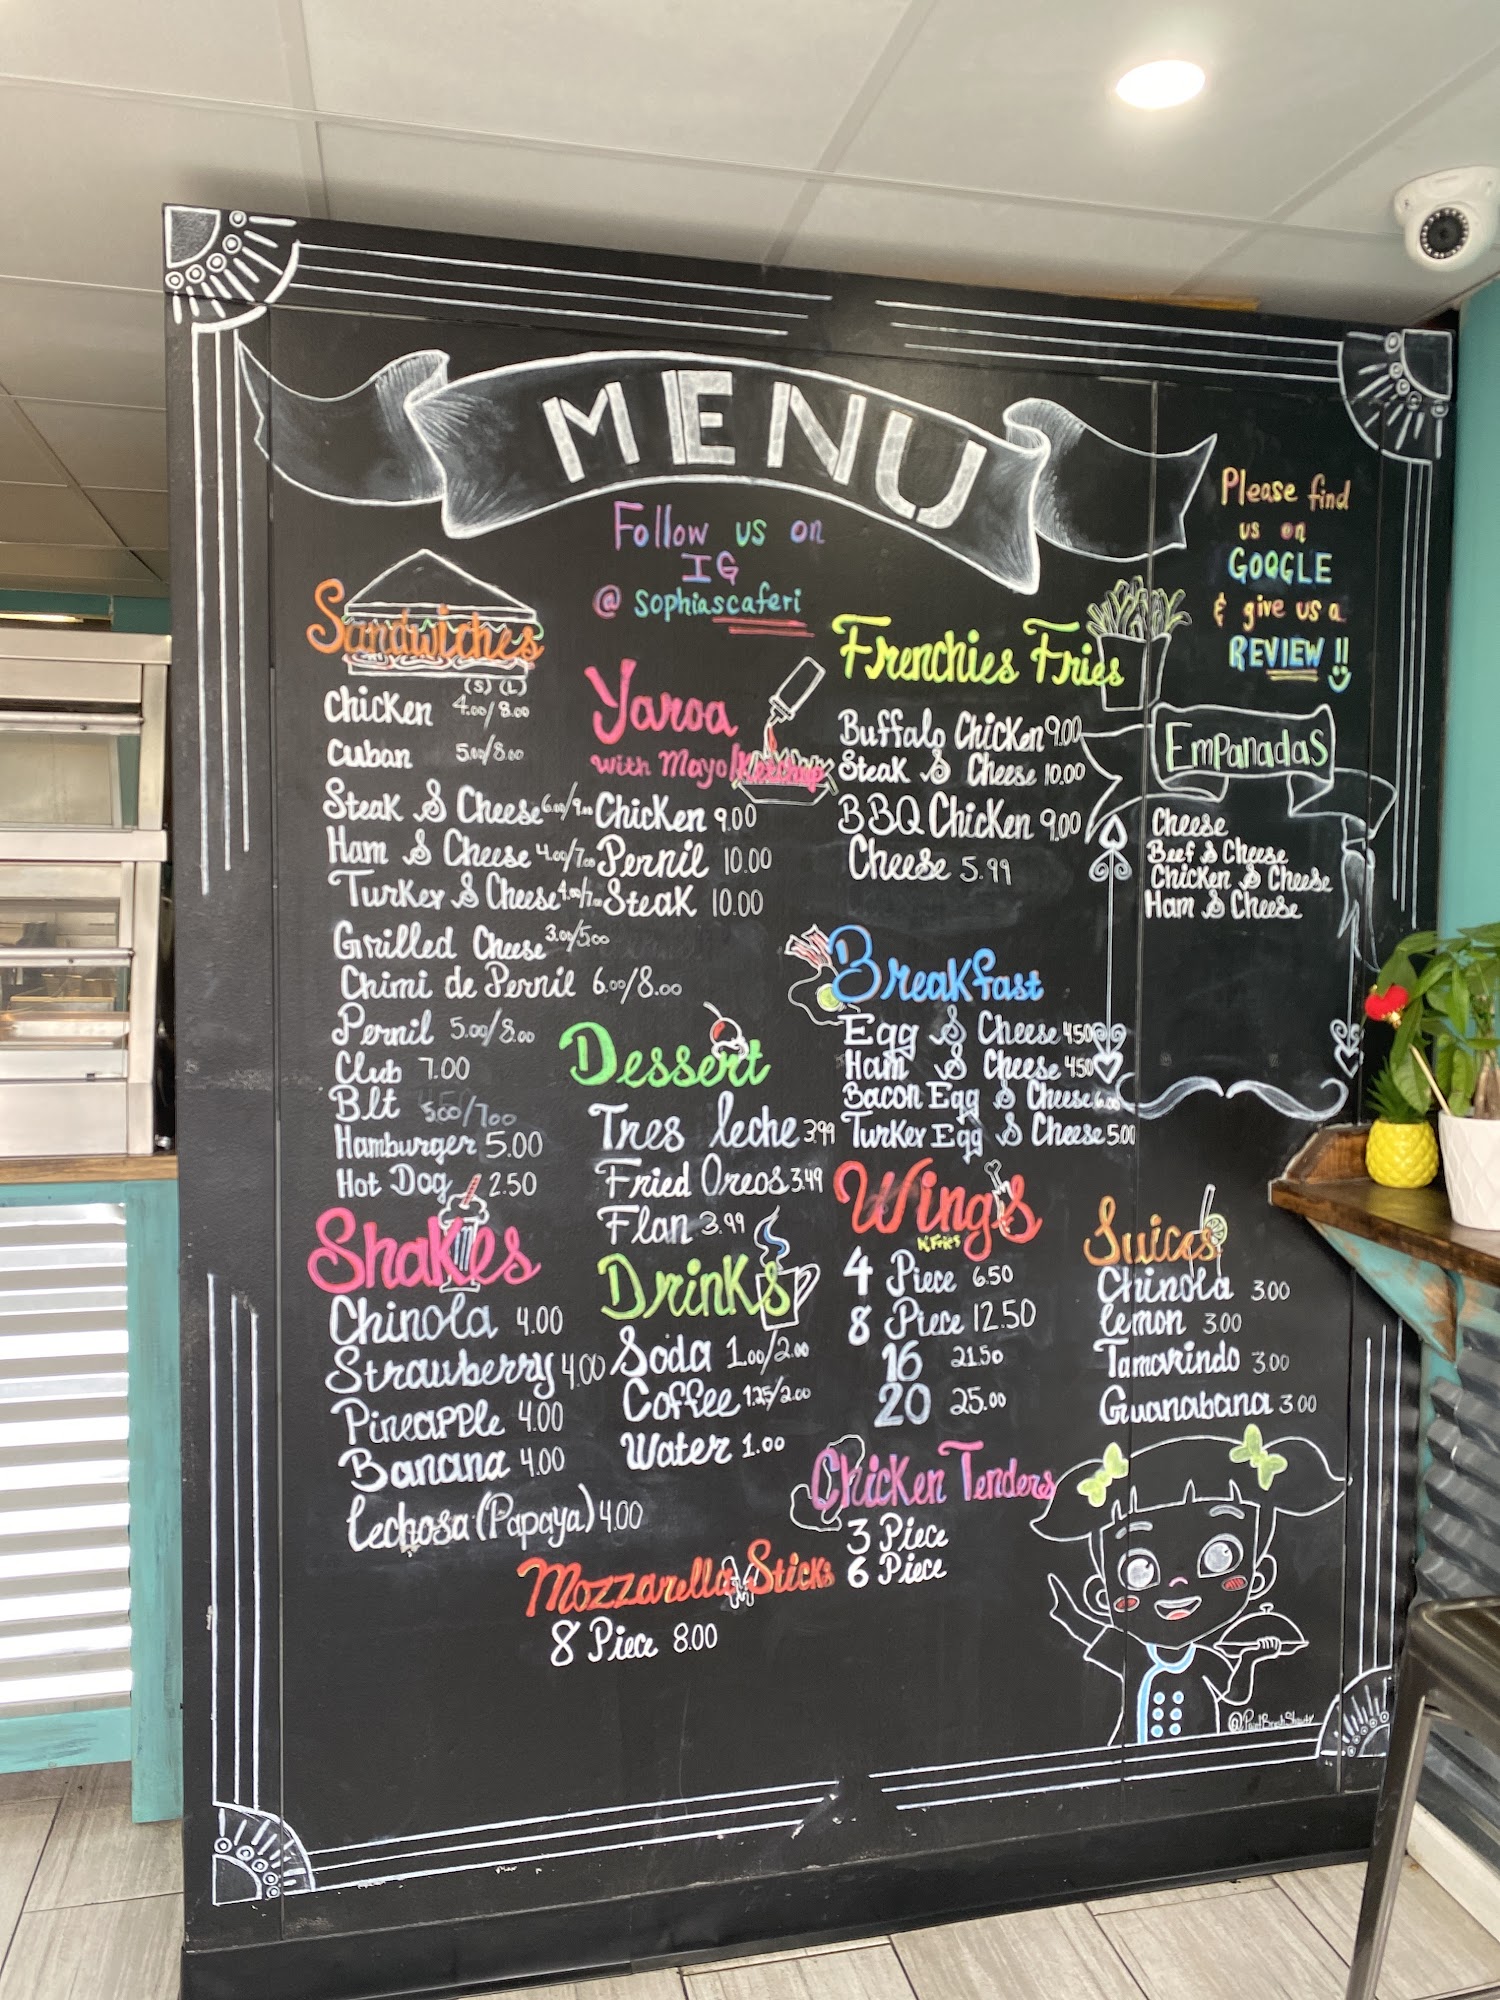 MENU
Follow us on
IG
@ sophiascaferi
Please find
us on
GOOGLE
& give us a
REVIEW !!
Sandwiches
(S) (L)
Chicken 4.00/8.00
Cuban 5.00/8.00
Steak & Cheese 6.00/9.00
Ham & Cheese 4.00/7.00
Turkey & Cheese 4.00/7.00
Grilled Cheese 3.00/5.00
Chimi de Pernil 6.00/8.00
Pernil 5.00/8.00
Club 7.00
Blt 5.00/7.00
Hamburger 5.00
Hot Dog 2.50
Shakes
Chinola 4.00
Strawberry 4.00
Pineapple 4.00
Banana 4.00
Lechosa (Papaya) 4.00
Yaroa
with Mayo/Ketchup
Chicken 9.00
Pernil 10.00
Steak 10.00
Dessert
Tres leche 3.99
Fried Oreos 3.49
Flan 3.99
Drinks
Soda 1.00/2.00
Coffee 1.25/2.00
Water 1.00
Mozzarella Sticks
8 Piece 8.00
Frenchies Fries
Buffalo Chicken 9.00
Steak & Cheese 10.00
BBQ Chicken 9.00
Cheese 5.99
Breakfast
Egg & Cheese 4.50
Ham & Cheese 4.50
Bacon Egg & Cheese 6.00
Turkey Egg & Cheese 5.00
Wings
4 Piece 6.50
8 Piece 12.50
16 21.50
20 25.00
Chicken Tenders
3 Piece
6 Piece
EmPanadaS
Cheese
Beef & Cheese
Chicken & Cheese
Ham & Cheese
Juices
Chinola 3.00
Lemon 3.00
Tamarindo 3.00
Guanabana 3.00